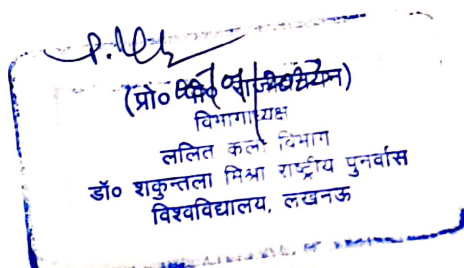 (प्रो०
विभागाध्यक्ष
ललित कला विभाग
डॉ० शकुन्तला मिश्रा राष्ट्रीय पुनर्वास
विश्वविद्यालय, लखनऊ